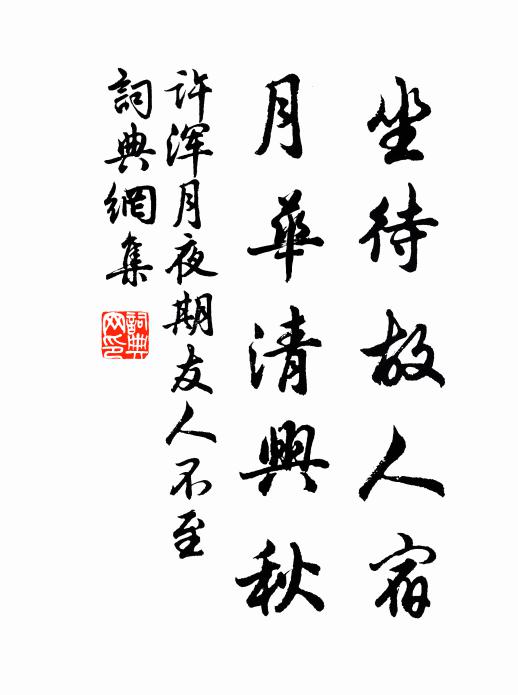 坐待故人宿
月華清興秋
许渾月夜期友人不至
詞典網集
詞典网印